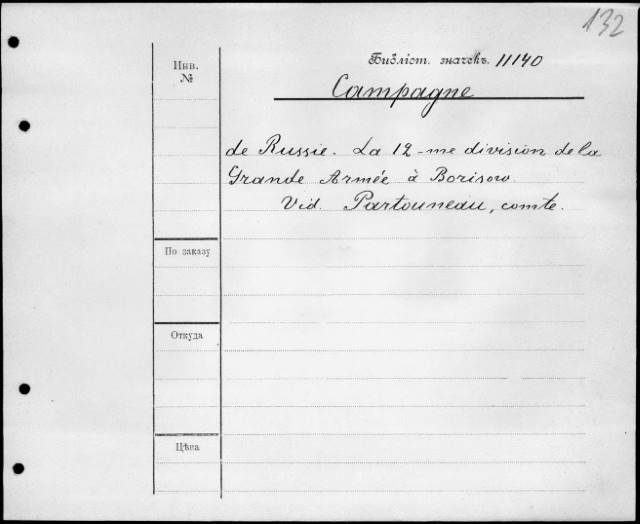 132
Инв.
№
Библіот. значекъ. 11140
Campagne
de Russie. La 12-me division de la
Grande Armée à Borisow.
Vid. Partouneau, comte.
По заказу
Откуда
Цѣна